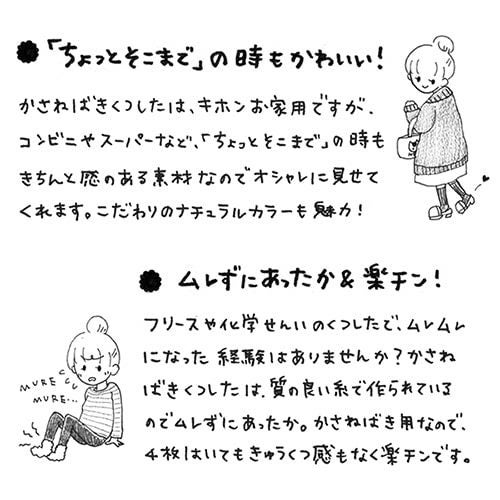 「ちょっとそこまで」の時もかわいい！
かさねばきくつしたは、キホンお家用ですが、
コンビニやスーパーなど、「ちょっとそこまで」の時も
きちんと感のある素材なのでオシャレに見せて
くれます。こだわりのナチュラルカラーも魅力！
ムレずにあったか&楽チン！
フリースや化学せんいのくつしたで、ムレムレ
になった経験はありませんか？かさね
ばきくつしたは、質の良い糸で作られている
のでムレずにあったか。かさねばき用なので、
4枚はいてもきゅうくつ感もなく楽チンです。
MURE
MURE...